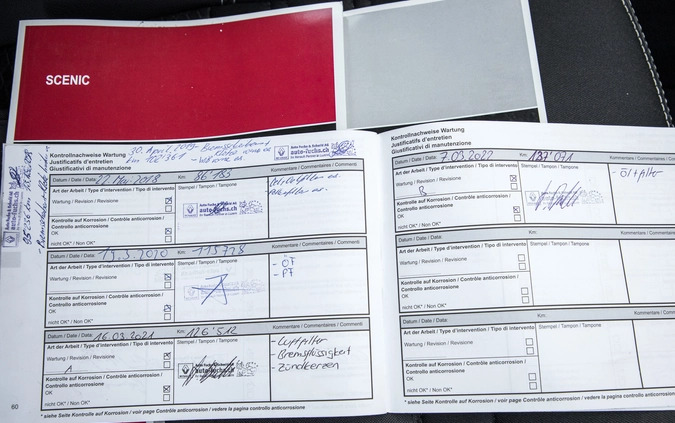 SCENIC
Kontrollnachweise Wartung
Justificatifs d'entretien
Giustificativi di manutenzione
30. April 2019
Datum / Date / Data: 22. Mai 2018 Km: 86'185 Kommentare / Commentaires / Commenti
Art der Arbeit / Type d'intervention / Tipo di intervento
Stempel / Tampon / Tampone
Wartung / Revision / Revisione
auto-fuchs.ch
Kontrolle auf Korrosion / Contrôle anticorrosion /
Controllo anticorrosione
OK
nicht OK* / Non OK*
Datum / Date / Data: 19.5.2020 Km: 115'728 Kommentare / Commentaires / Commenti
Art der Arbeit / Type d'intervention / Tipo di intervento
Stempel / Tampon / Tampone
- ÖF
- PF
Wartung / Revision / Revisione
Kontrolle auf Korrosion / Contrôle anticorrosion /
Controllo anticorrosione
OK
nicht OK* / Non OK*
Datum / Date / Data: 16.03.2021 Km: 126'512 Kommentare / Commentaires / Commenti
Art der Arbeit / Type d'intervention / Tipo di intervento
Stempel / Tampon / Tampone
- Luftfilter
- Bremsflüssigkeit
- Zündkerzen
Wartung / Revision / Revisione
A
Kontrolle auf Korrosion / Contrôle anticorrosion /
Controllo anticorrosione
OK
nicht OK* / Non OK*
60
* siehe Seite Kontrolle auf Korrosion / voir page Contrôle anticorrosion / vedere la pagina controllo anticorrosione
Kontrollnachweise Wartung
Justificatifs d'entretien
Giustificativi di manutenzione
Datum / Date / Data: 7.03.2022 Km: 137'071 Kommentare / Commentaires / Commenti
Art der Arbeit / Type d'intervention / Tipo di intervento
Stempel / Tampon / Tampone
- Ölfilter
Wartung / Revision / Revisione
B
Kontrolle auf Korrosion / Contrôle anticorrosion /
Controllo anticorrosione
OK
nicht OK* / Non OK*
Datum / Date / Data: Km: Kommentare / Commentaires / Commenti
Art der Arbeit / Type d'intervention / Tipo di intervento
Stempel / Tampon / Tampone
Wartung / Revision / Revisione
Kontrolle auf Korrosion / Contrôle anticorrosion /
Controllo anticorrosione
OK
nicht OK* / Non OK*
Datum / Date / Data: Km: Kommentare / Commentaires / Commenti
Art der Arbeit / Type d'intervention / Tipo di intervento
Stempel / Tampon / Tampone
Wartung / Revision / Revisione
Kontrolle auf Korrosion / Contrôle anticorrosion /
Controllo anticorrosione
OK
nicht OK* / Non OK*
* siehe Seite Kontrolle auf Korrosion / voir page Contrôle anticorrosion / vedere la pagina controllo anticorrosione